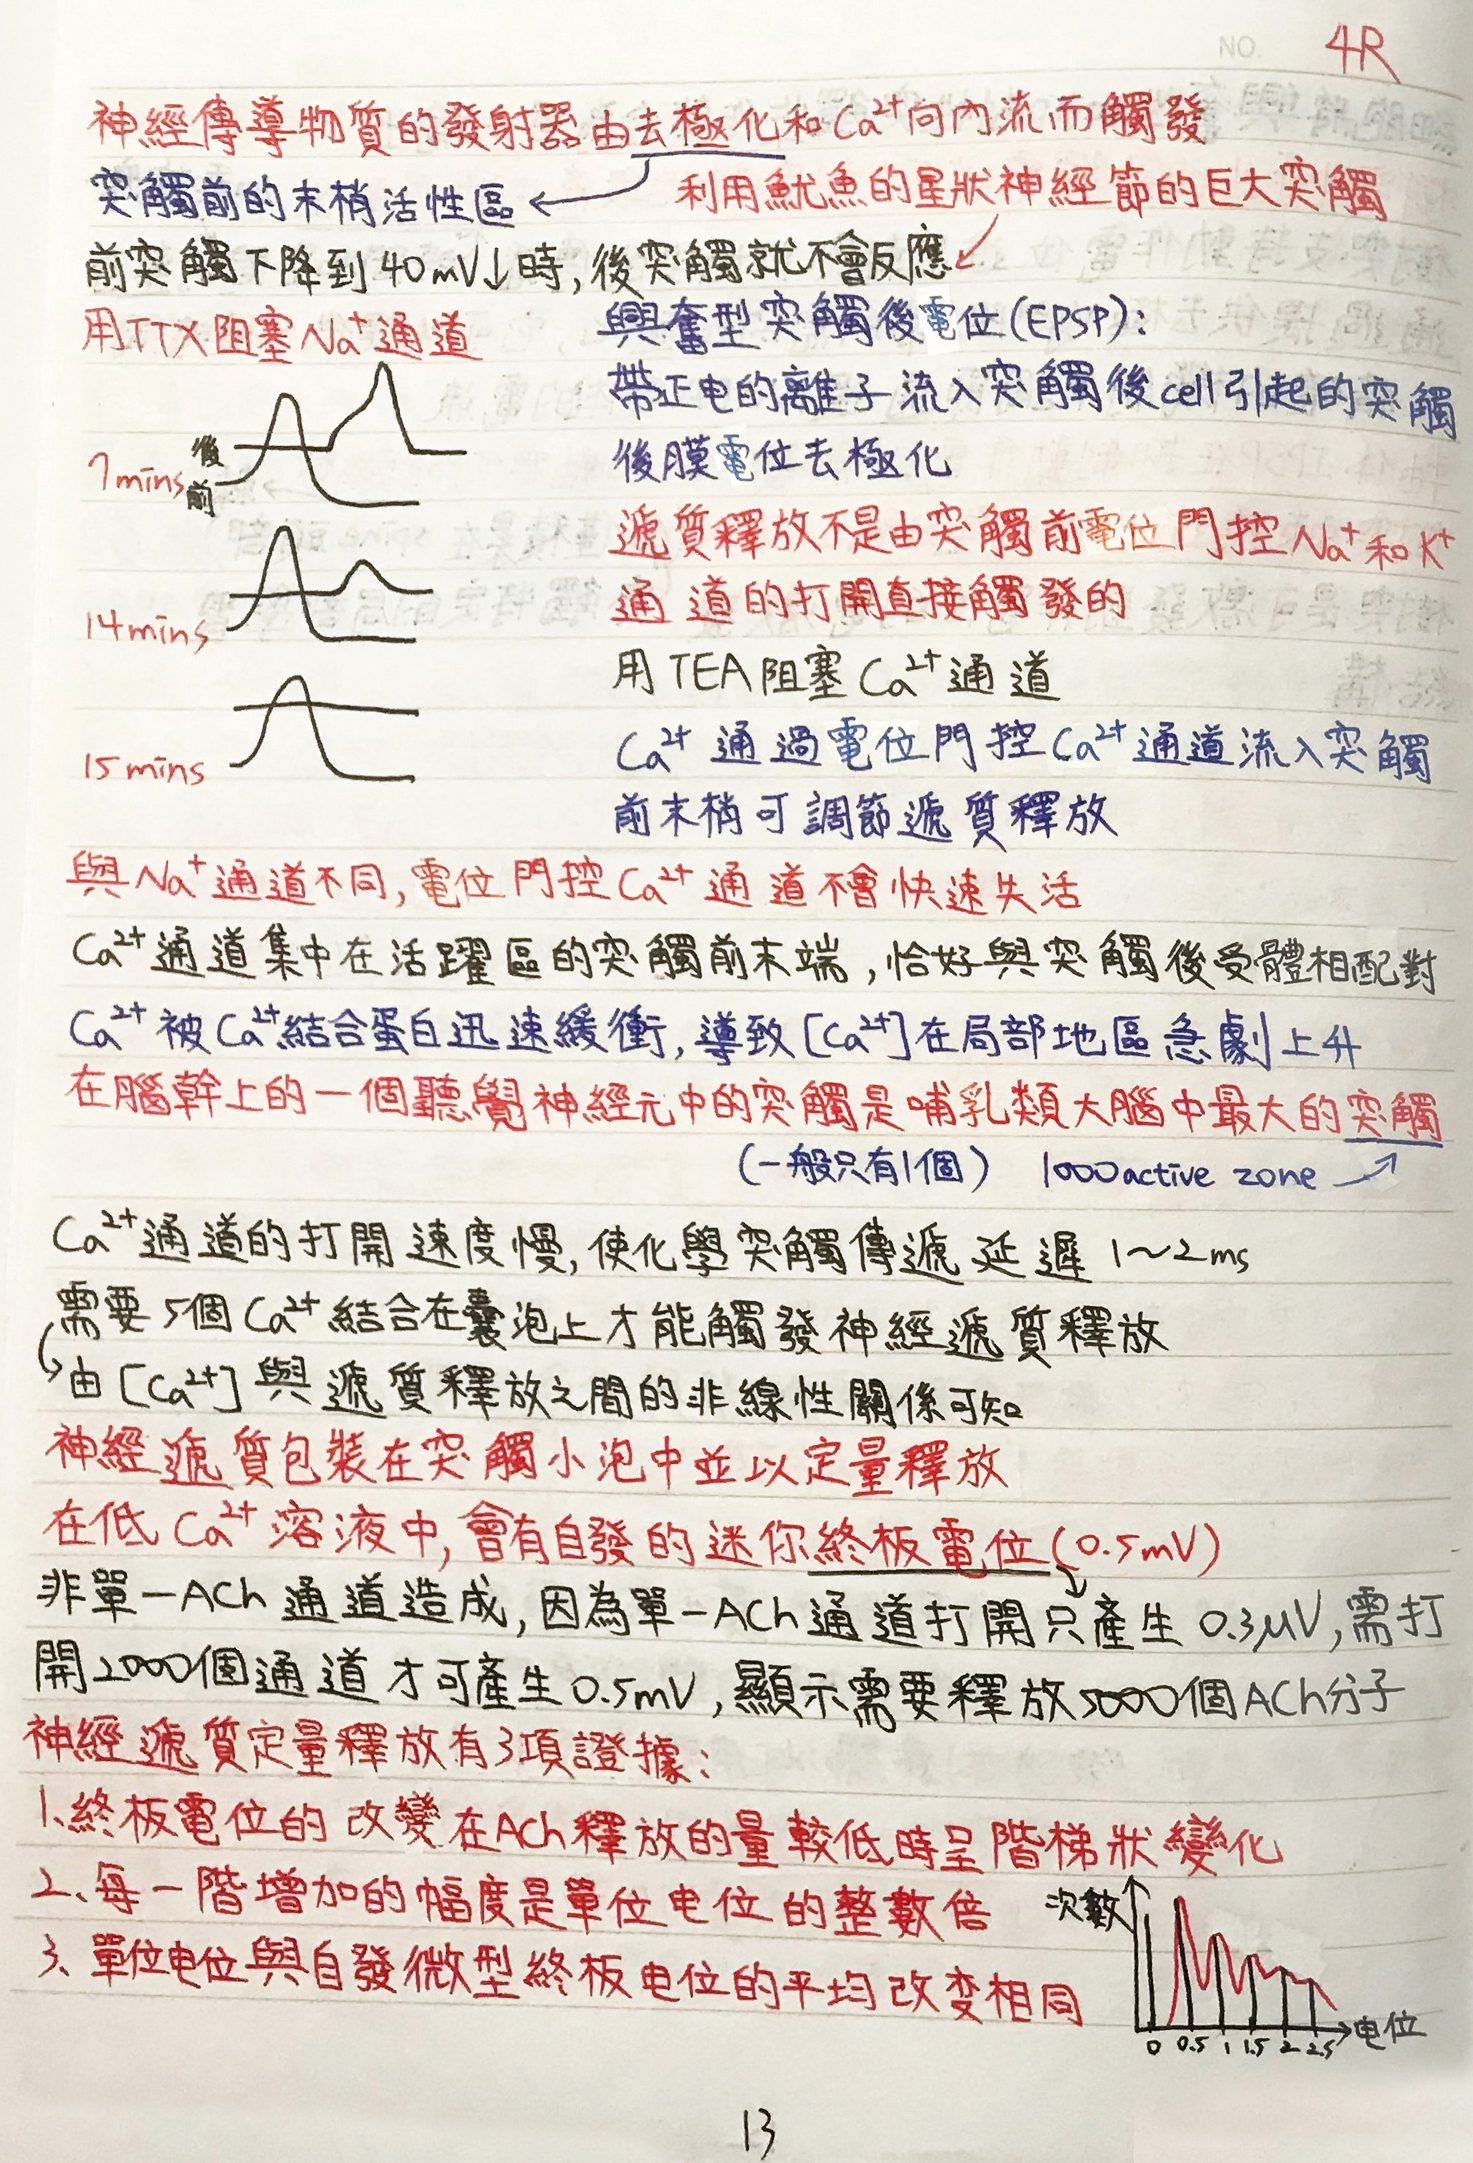 4R
神經傳導物質的發射器由去極化和Ca²⁺向內流而觸發
突觸前的末梢活性區 ← 利用魷魚的星狀神經節的巨大突觸
前突觸下降到40mV↓時,後突觸就不會反應
用TTX阻塞Na⁺通道
興奮型突觸後電位(EPSP):
帶正电的離子流入突觸後cell引起的突觸
後膜電位去極化
後
7mins 前
遞質釋放不是由突觸前電位門控Na⁺和K⁺
通道的打開直接觸發的
14mins
用TEA阻塞Ca²⁺通道
Ca²⁺通過電位門控Ca²⁺通道流入突觸
15mins
前末梢可調節遞質釋放
與Na⁺通道不同,電位門控Ca²⁺通道不會快速失活
Ca²⁺通道集中在活躍區的突觸前末端,恰好與突觸後受體相配對
Ca²⁺被Ca²⁺結合蛋白迅速緩衝,導致[Ca²⁺]在局部地區急劇上升
在腦幹上的一個聽覺神經元中的突觸是哺乳類大腦中最大的突觸
(一般只有1個) 1000active zone →
Ca²⁺通道的打開速度慢,使化學突觸傳遞延遲1~2ms
需要5個Ca²⁺結合在囊泡上才能觸發神經遞質釋放
由[Ca²⁺]與遞質釋放之間的非線性關係可知
神經遞質包裝在突觸小泡中並以定量釋放
在低Ca²⁺溶液中,會有自發的迷你終板電位(0.5mV)
非單一ACh通道造成,因為單一ACh通道打開只產生0.3μV,需打
開2000個通道才可產生0.5mV,顯示需要釋放5000個ACh分子
神經遞質定量釋放有3項證據:
1、終板電位的改變在ACh釋放的量較低時呈階梯狀變化
2、每一階增加的幅度是單位电位的整數倍
3、單位电位與自發微型終板电位的平均改变相同
次數
电位
0 0.5 1 1.5 2 2.5
13